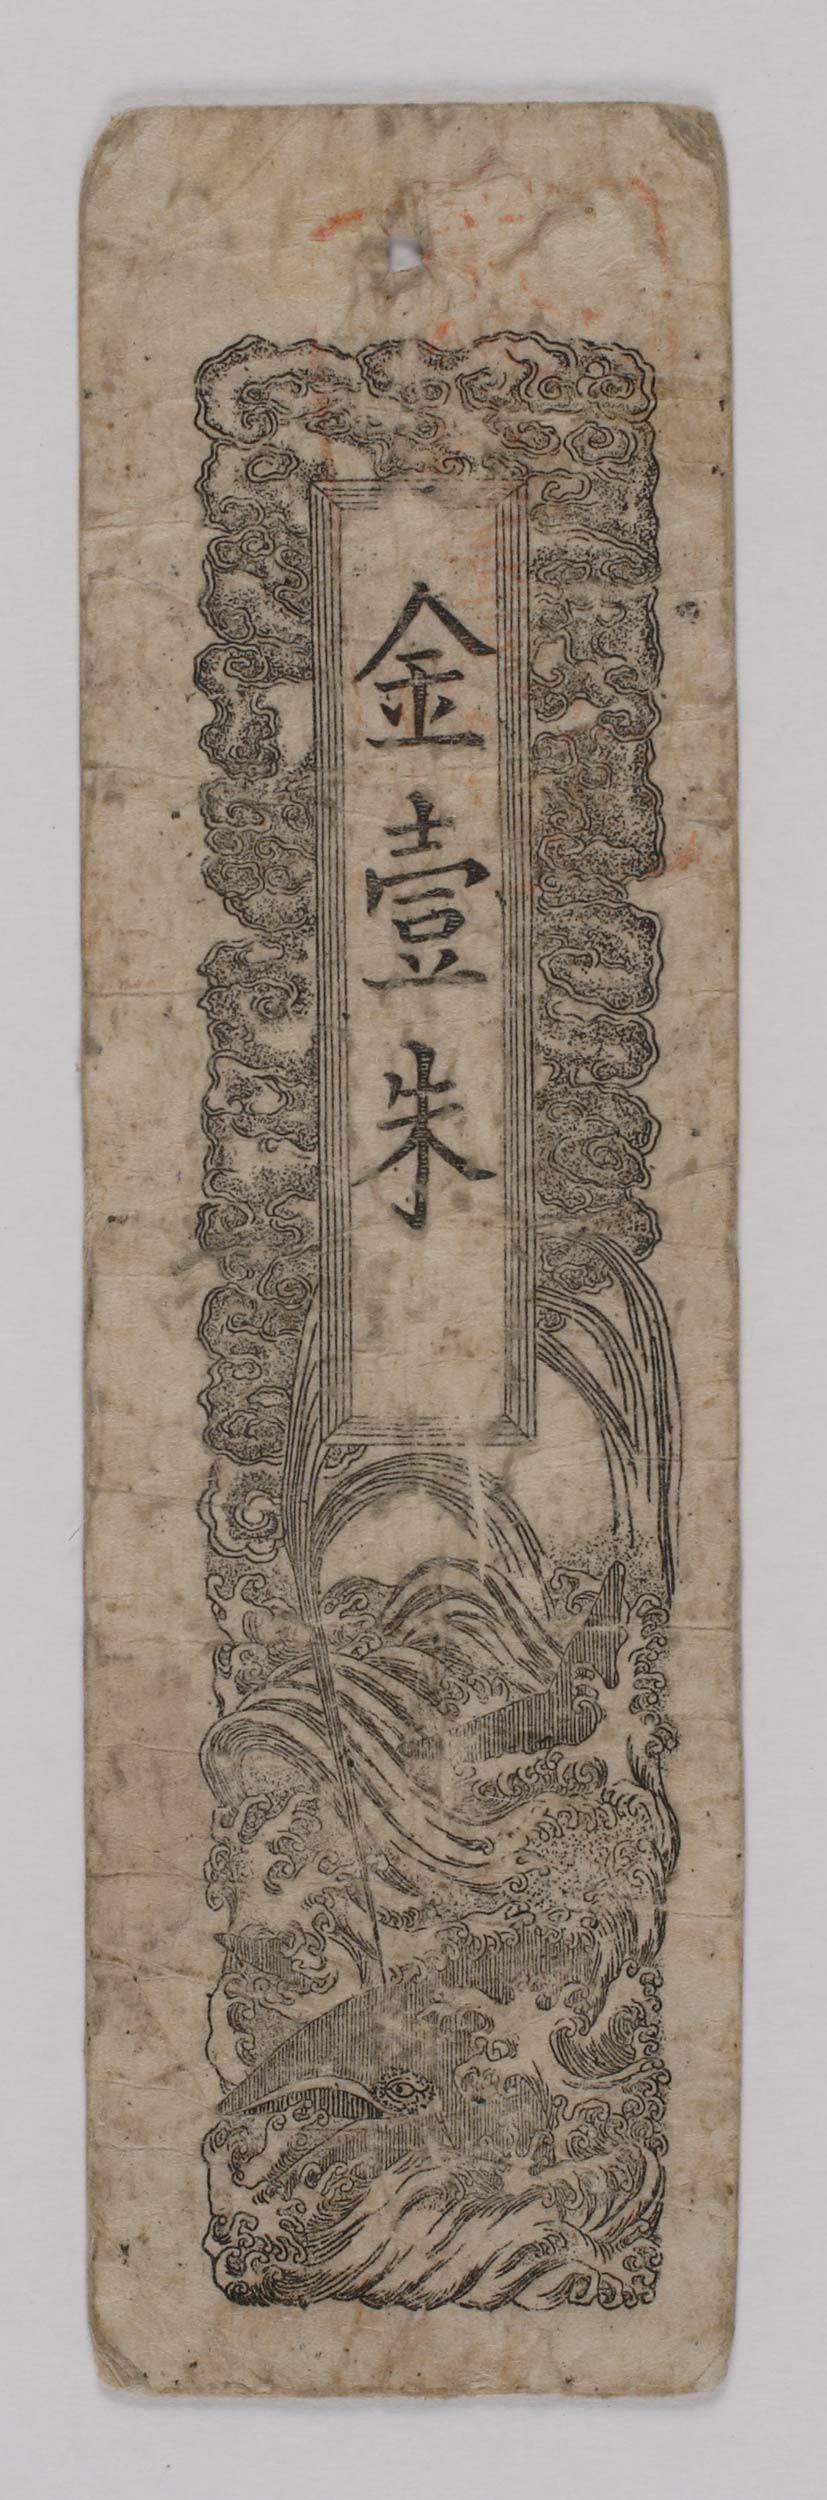 金壹朱